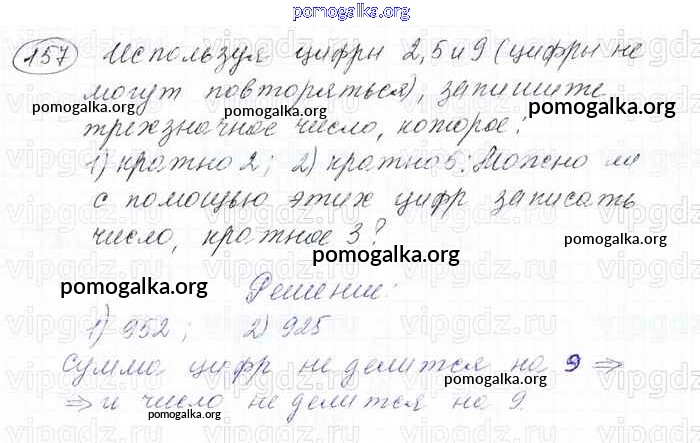 pomogalka.org
157 Используя цифры 2, 5 и 9 (цифры не
могут повторяться), запишите
pomogalka.org pomogalka.org
трехзначное число, которое:
1) кратно 2; 2) кратно 5. Можно ли
pomogalka.org
с помощью этих цифр записать
число, кратное 3?
pomogalka.org
pomogalka.org
Решение:
pomogalka.org
1) 952; 2) 925
pomogalka.org
Сумма цифр не делится на 9 ⇒
pomogalka.org
⇒ и число не делится на 9.
pomogalka.org